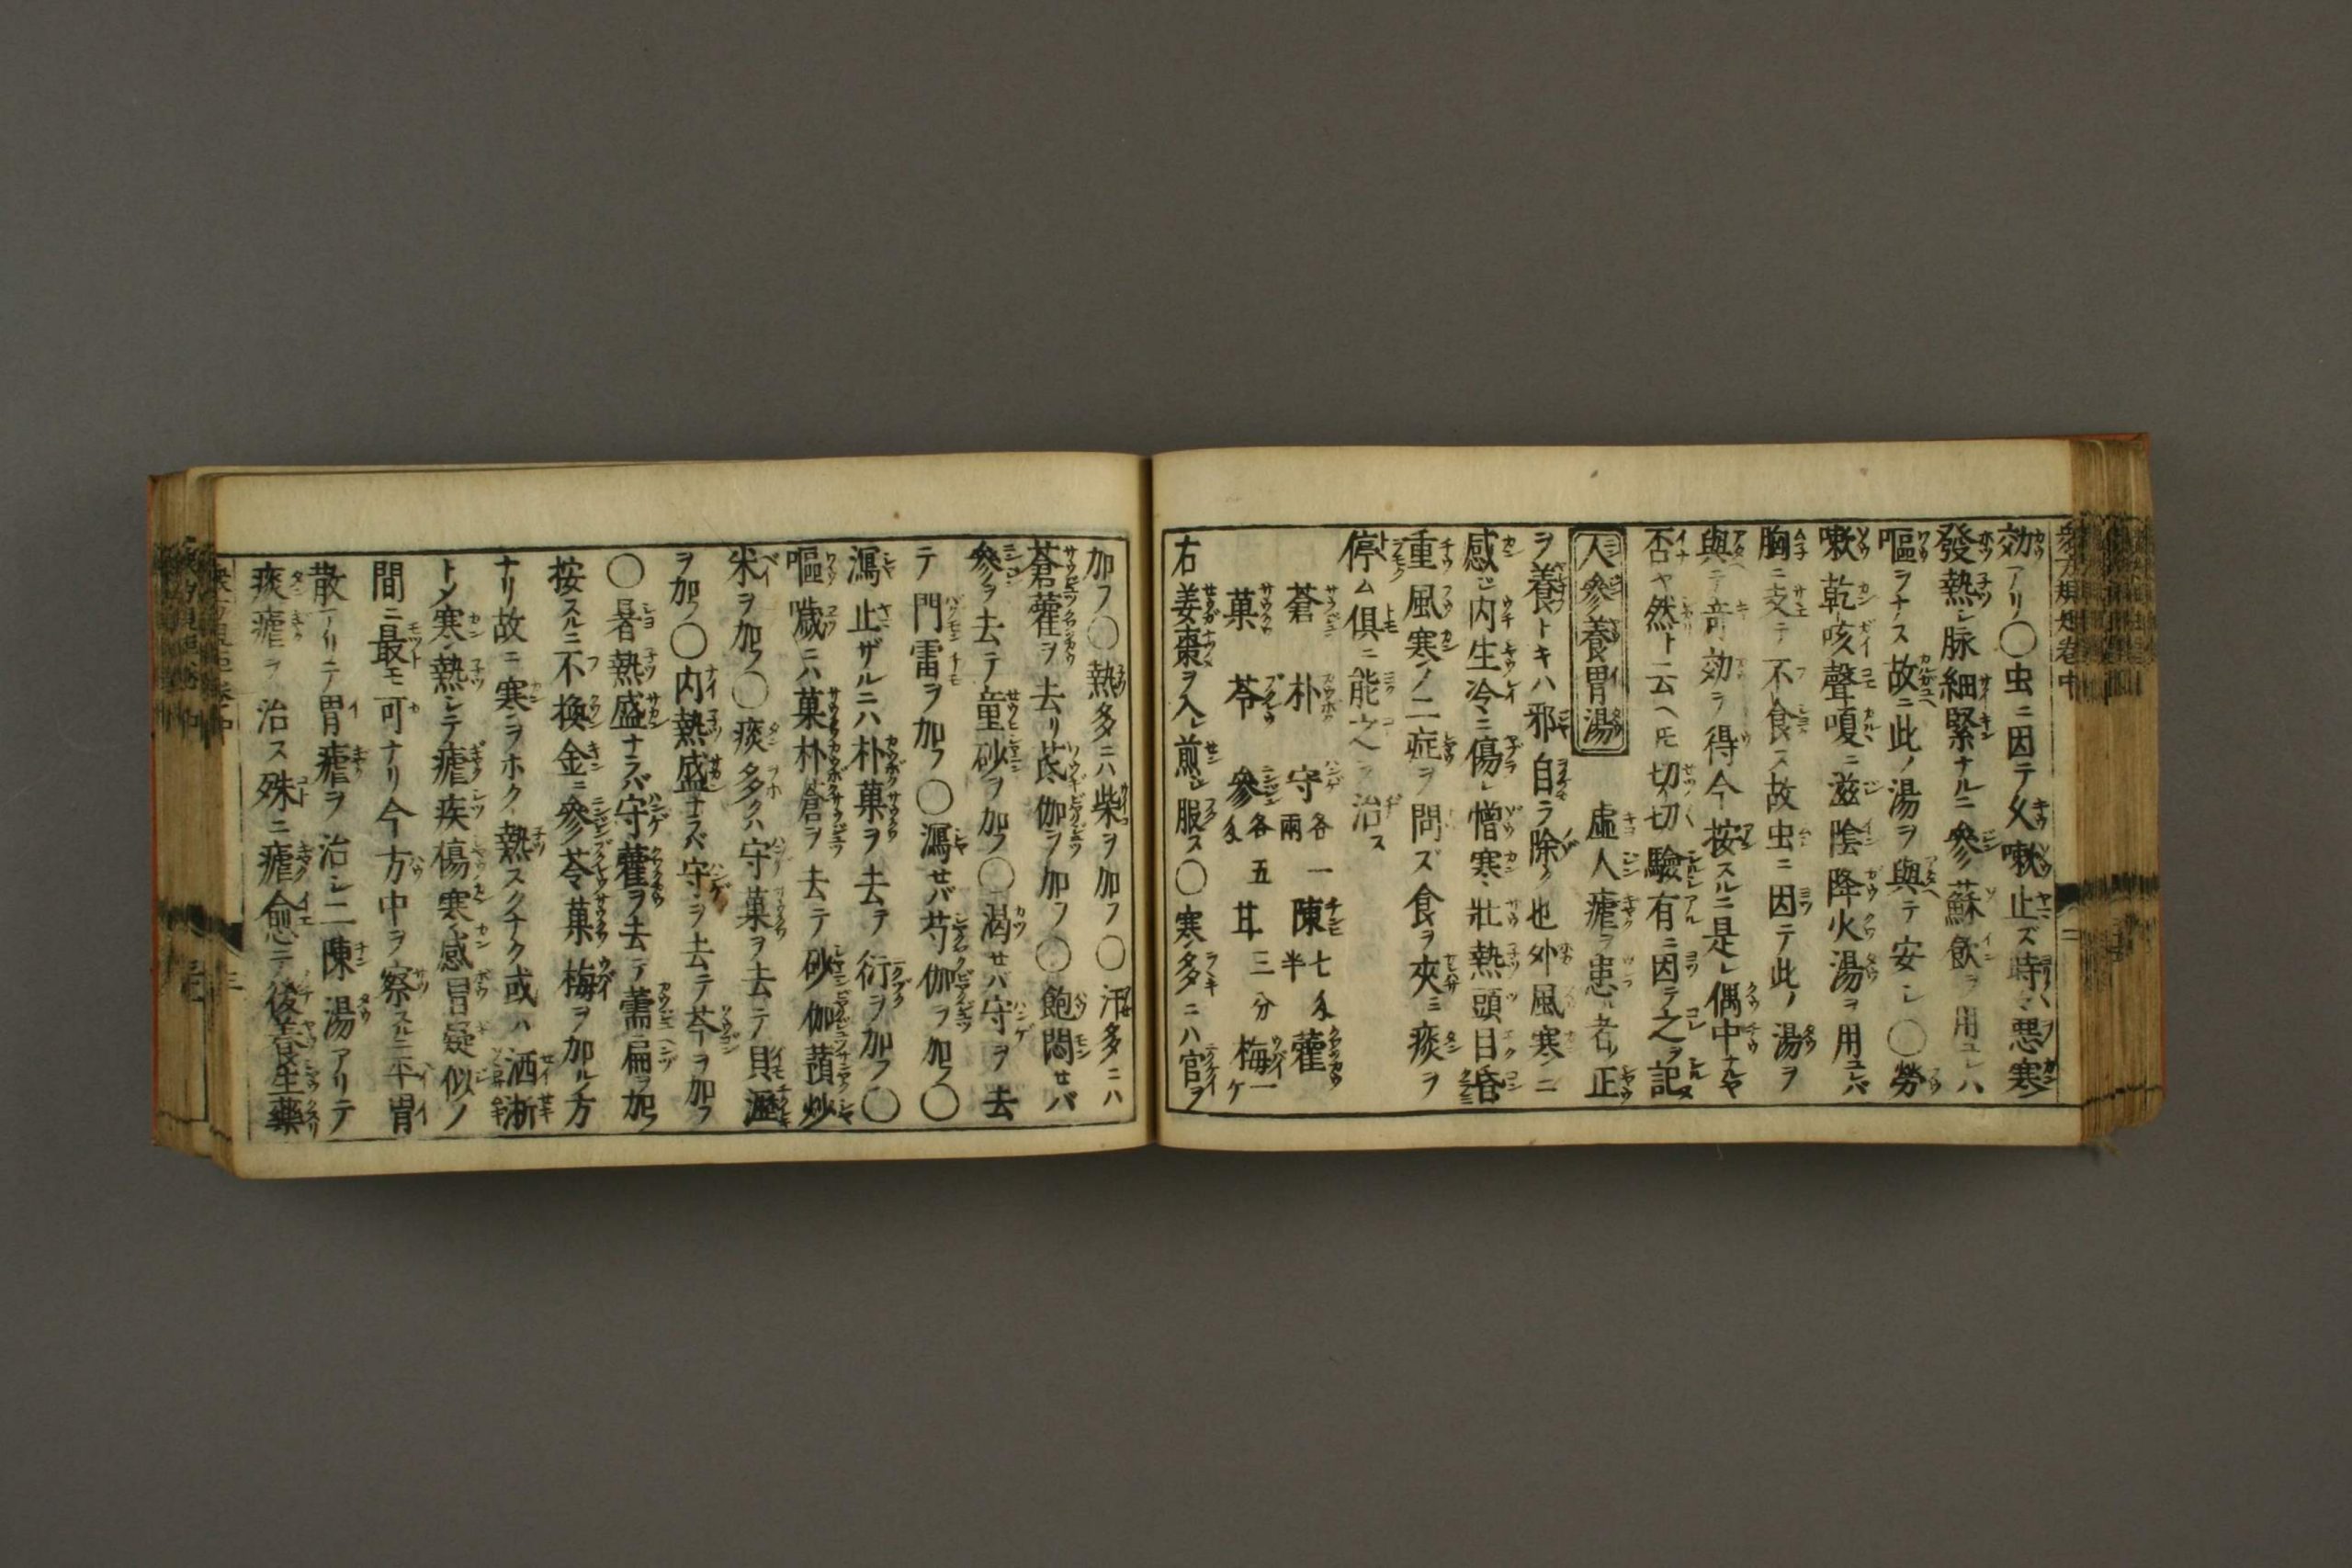 衆方規矩卷中
効アリ〇虫ニ因テ久嗽止ズ時々悪寒
發熱シ脉細緊ナルニ參蘇飲ヲ用ユレハ
嘔ヲナス故ニ此ノ湯ヲ與テ安シ〇勞
嗽乾咳聲嗄ニ滋陰降火湯ヲ用ユレバ
胸ニ支テ不食ス故虫ニ因テ此ノ湯ヲ
與テ奇効ヲ得今按スルニ是レ偶中ナルヤ
否ヤ然ト云ヘ𪜈切切驗有ニ因テ之ヲ記
人參養胃湯
虛人瘧ヲ患ル者ノ正
ヲ養フトキハ邪自ラ除ク也外風寒ニ
感ジ内生冷ニ傷レ憎寒壯熱頭目昏
重風寒ノ二症ヲ問ズ食ヲ夾ミ痰ヲ
停ム俱ニ能之ヲ治ス
蒼 朴 守各一兩 陳七匁半 藿
菓 苓 參各五匁 甘三分 梅一ケ
右姜棗ヲ入レ煎シ服ス〇寒多ニハ官ヲ
加フ〇熱多ニハ柴ヲ加フ〇汗多ニハ
蒼藿ヲ去リ茋伽ヲ加フ〇飽悶セバ
參ヲ去テ童砂ヲ加フ〇渴セバ守ヲ去
テ門雷ヲ加フ〇瀉セバ芍伽ヲ加フ〇
瀉止ザルニハ朴菓ヲ去テ衍ヲ加フ〇
嘔噦ニハ菓朴蒼ヲ去テ砂伽蕷炒
米ヲ加フ〇痰多クハ守菓ヲ去テ貝瀝
ヲ加フ〇内熱盛ナラバ守ヲ去テ芩ヲ加フ
〇暑熱盛ナラバ守藿ヲ去テ薷扁ヲ加フ
按スルニ不換金ニ參苓菓梅ヲ加ル方
ナリ故ニ寒ヲホク熱スクナク或ハ洒淅
トメ寒熱シテ瘧疾傷寒感冒疑似ノ
間ニ最モ可ナリ今方中ヲ察スルニ平胃
散アリテ胃瘧ヲ治シ二陳湯アリテ
痰瘧ヲ治ス殊ニ瘧愈テ後養生藥